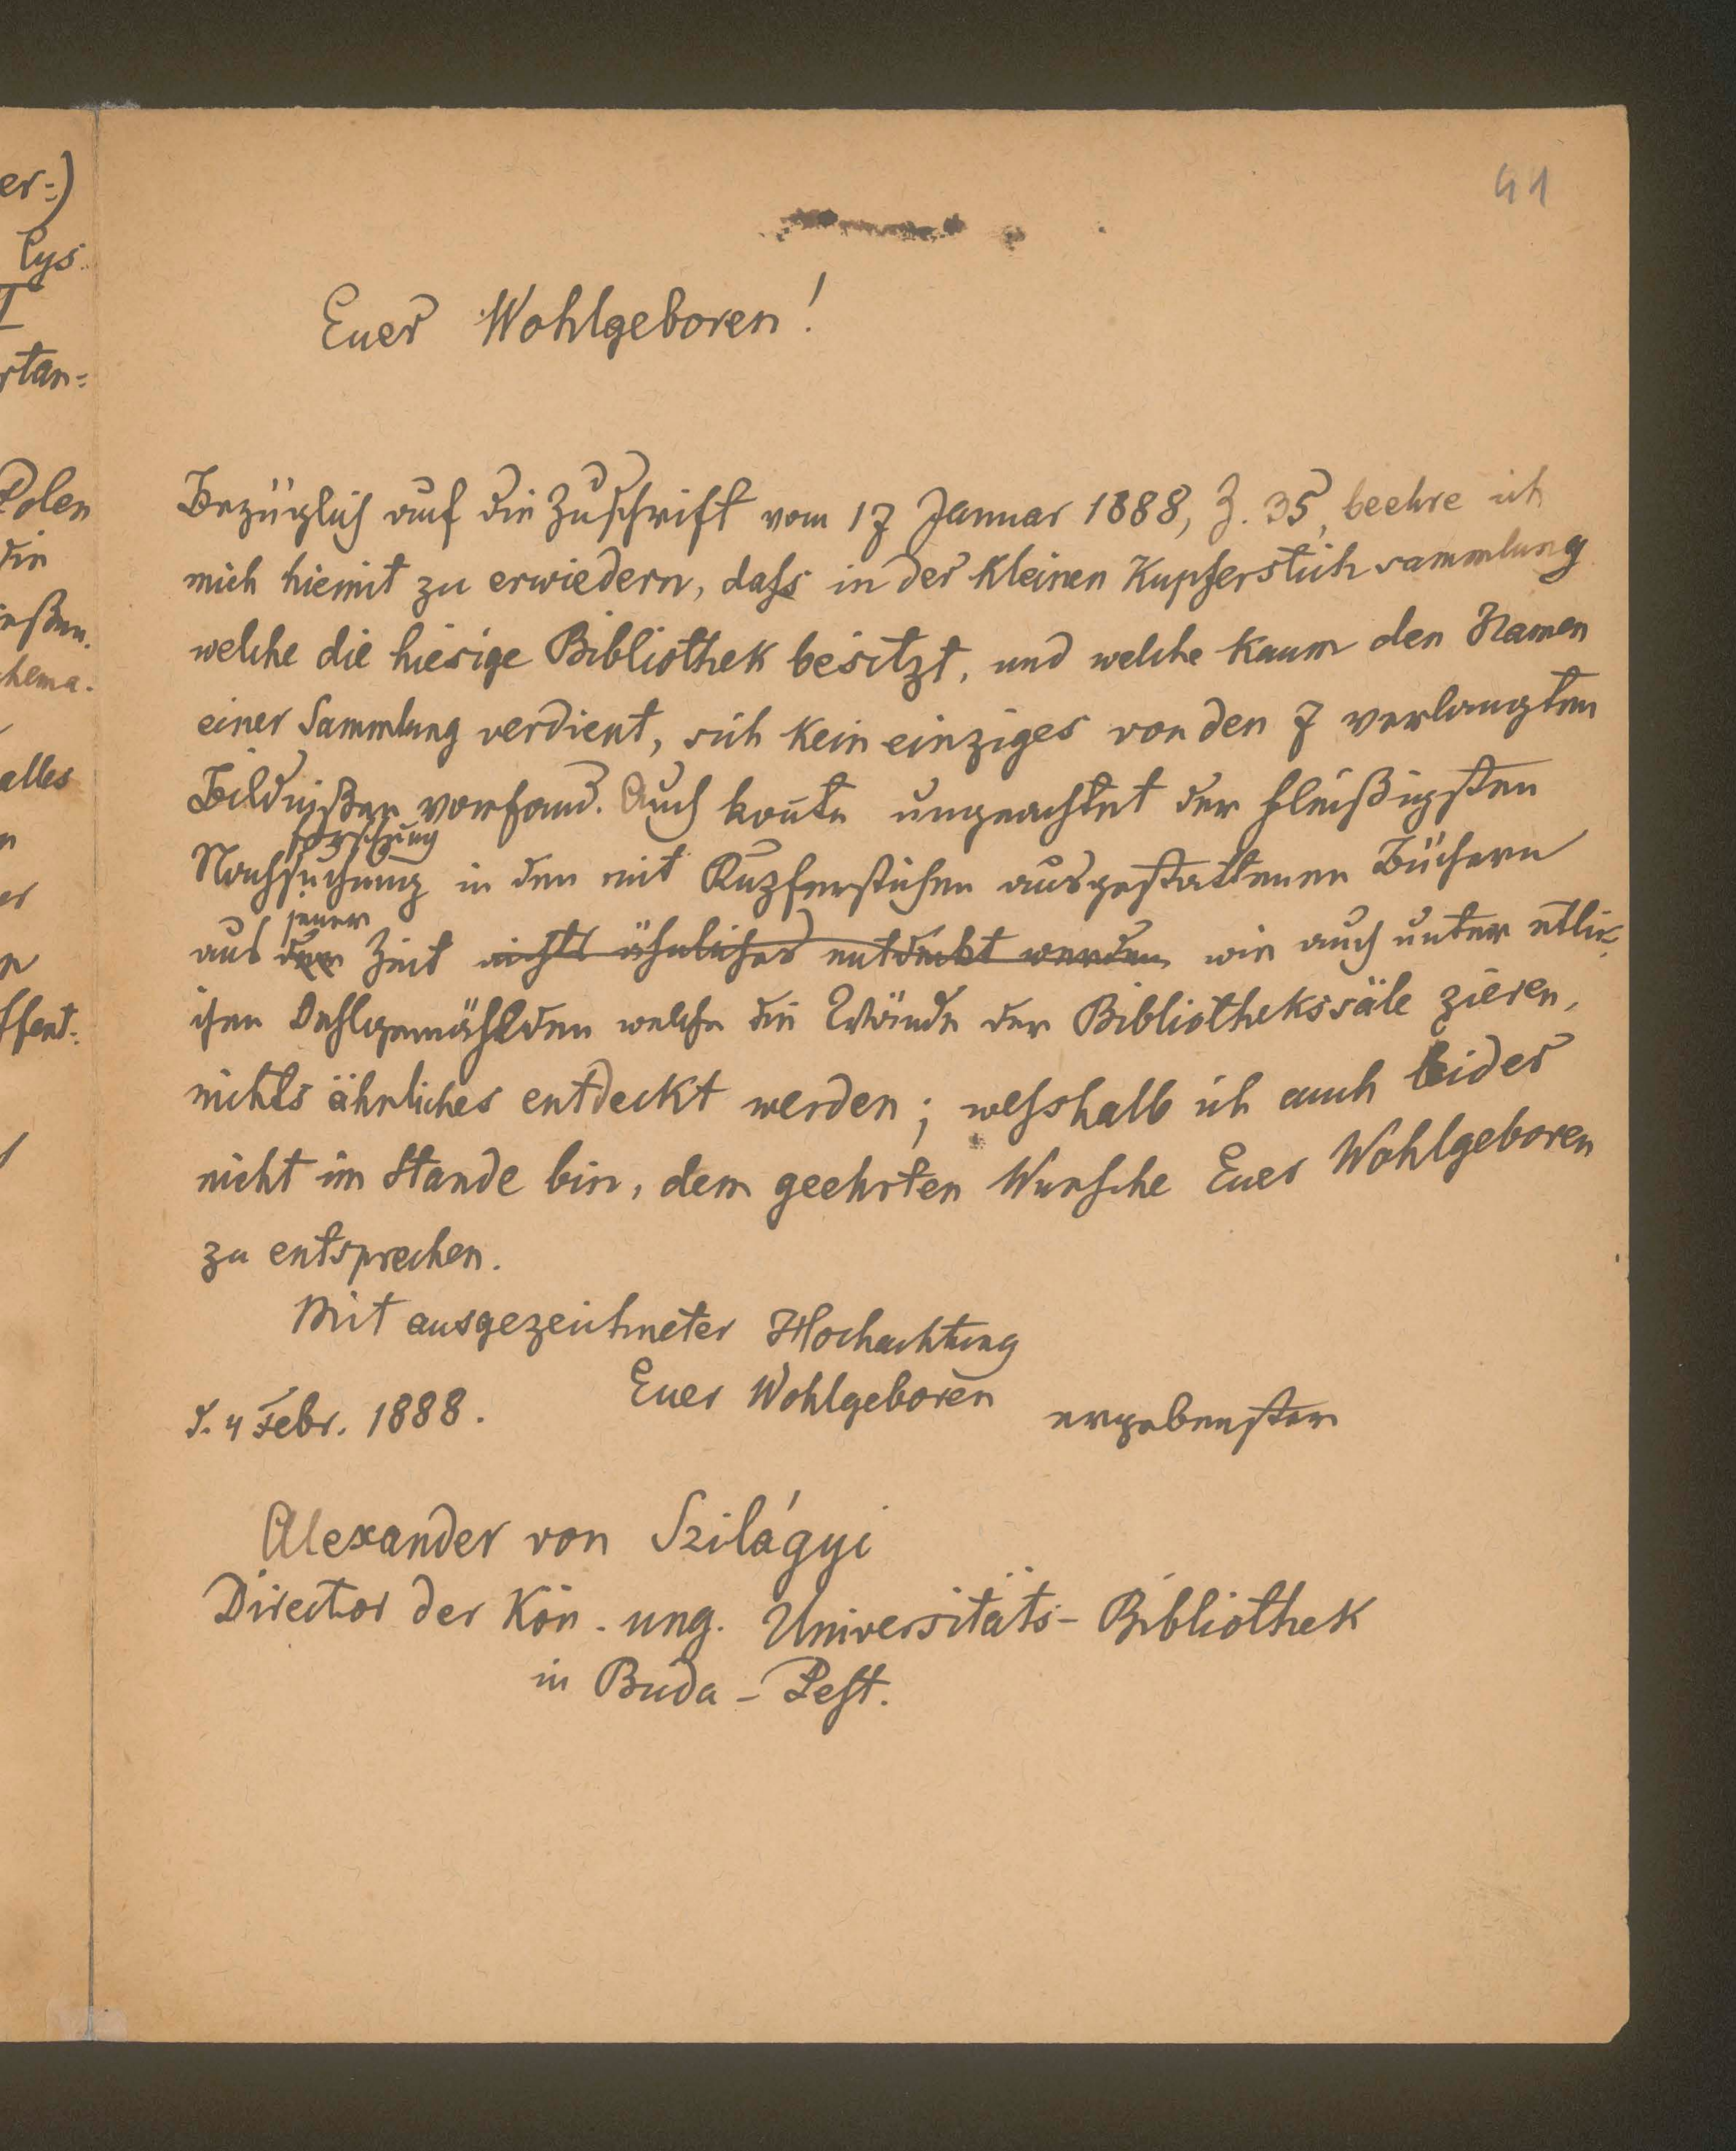 41
er:)
Cys.
I
rtan=
Polen
die
ießen.
chema.
alles
n
er
ffent:
Euer Wohlgeboren!
Bezüglich auf die Zuschrift vom 17 Januar 1888, Z. 35, beehre ich
mich hiemit zu erwiedern, dass in der kleinen Kupferstichsammlung
welche die hiesige Bibliothek besitzt, und welche kaum den Namen
einer Sammlung verdient, sich kein einziges von den 7 verlangten
Bildnißen vorfand. Auch konte ungeachtet der fleißigsten
forschung
Nachsuchung in den mit Kupferstichen ausgestattenen Büchern
jener
aus der Zeit nichts ähnliches entdeckt werden wie auch unter etlic-
hen Oehlgemählden welche die Wände der Bibliothekssäle zieren,
nichts ähnliches entdeckt werden; wesshalb ich auch leider
nicht im Stande bin, dem geehrten Wunsche Euer Wohlgeboren
zu entsprechen.
Mit ausgezeichneter Hochachtung
Euer Wohlgeboren
d. 4 Febr. 1888. ergebenster
Alexander von Szilágyi
Director der Kön. ung. Universitäts-Bibliothek
in Buda-Pest.